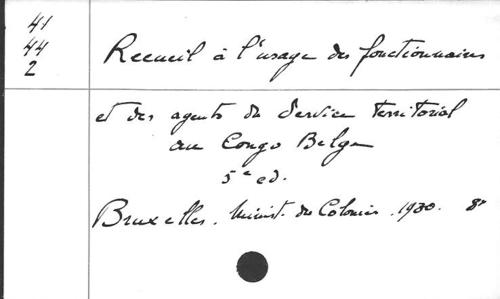 41
44
2
Recueil à l'usage des fonctionnaires
et des agents du Service Territorial
au Congo Belge
5e ed.
Bruxelles. Minist. des Colonies. 1930. 8º